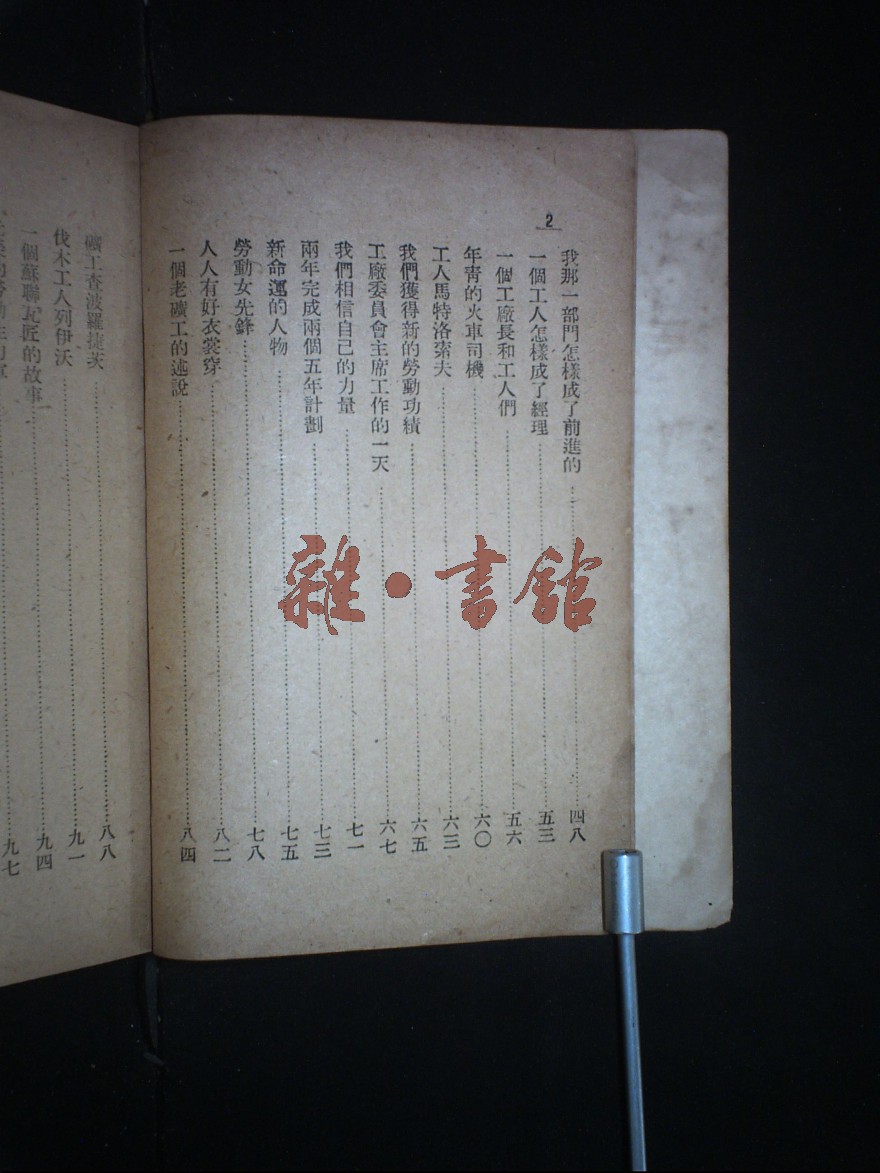 2
我那一部門怎樣成了前進的……四八
一個工人怎樣成了經理……五三
一個工廠長和工人們……五六
年青的火車司機……六〇
工人馬特洛索夫……六三
我們獲得新的勞動功績……六五
工廠委員會主席工作的一天……六七
我們相信自己的力量……七一
兩年完成兩個五年計劃……七三
新命運的人物……七五
勞動女先鋒……七八
人人有好衣裳穿……八二
一個老礦工的述說……八四
礦工查波羅捷茨……八八
伐木工人列伊沃……九一
一個蘇聯瓦匠的故事……九四
九七
雜·書館